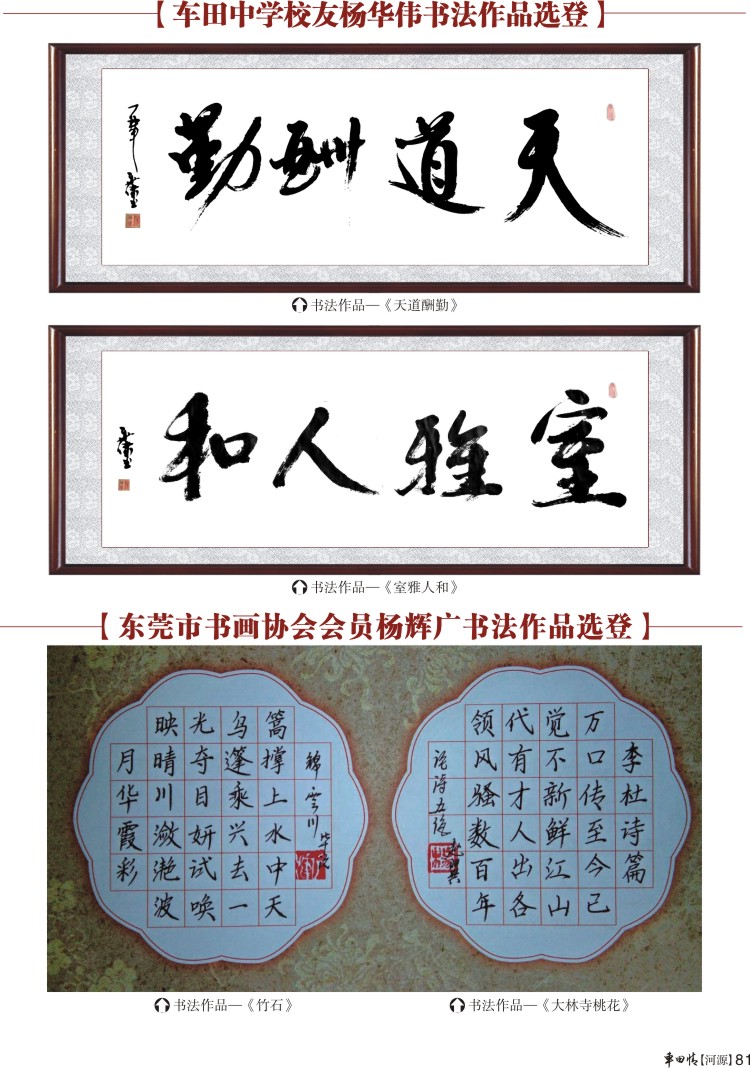 【车田中学校友杨华伟书法作品选登】
天道酬勤
书法作品—《天道酬勤》
室雅人和
书法作品—《室雅人和》
【东莞市书画协会会员杨辉广书法作品选登】
月华霞彩
映晴川潋滟波
光夺目妍试唤
乌篷乘兴去一
篙撑上水中天
李杜诗篇
万口传至今已
觉不新鲜江山
代有才人出各
领风骚数百年
论诗五绝
赵翼
书法作品—《竹石》
书法作品—《大林寺桃花》
車田情【河源】81